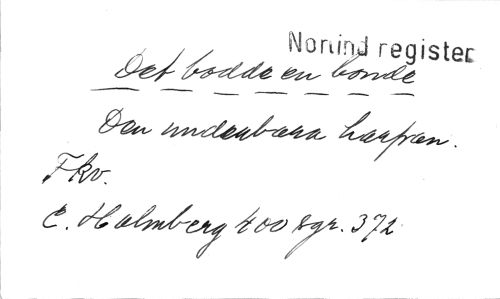 Norlind register
Det bodde en bonde
Den underbara harpan.
Fkv.
E. Holmberg 400 sgr. 372